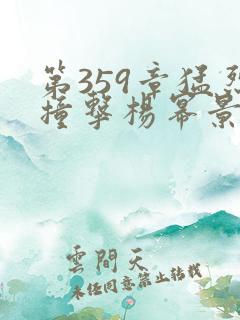 第359章猛烈
撞撃楊冪景
雲間天
未经同意禁止转载